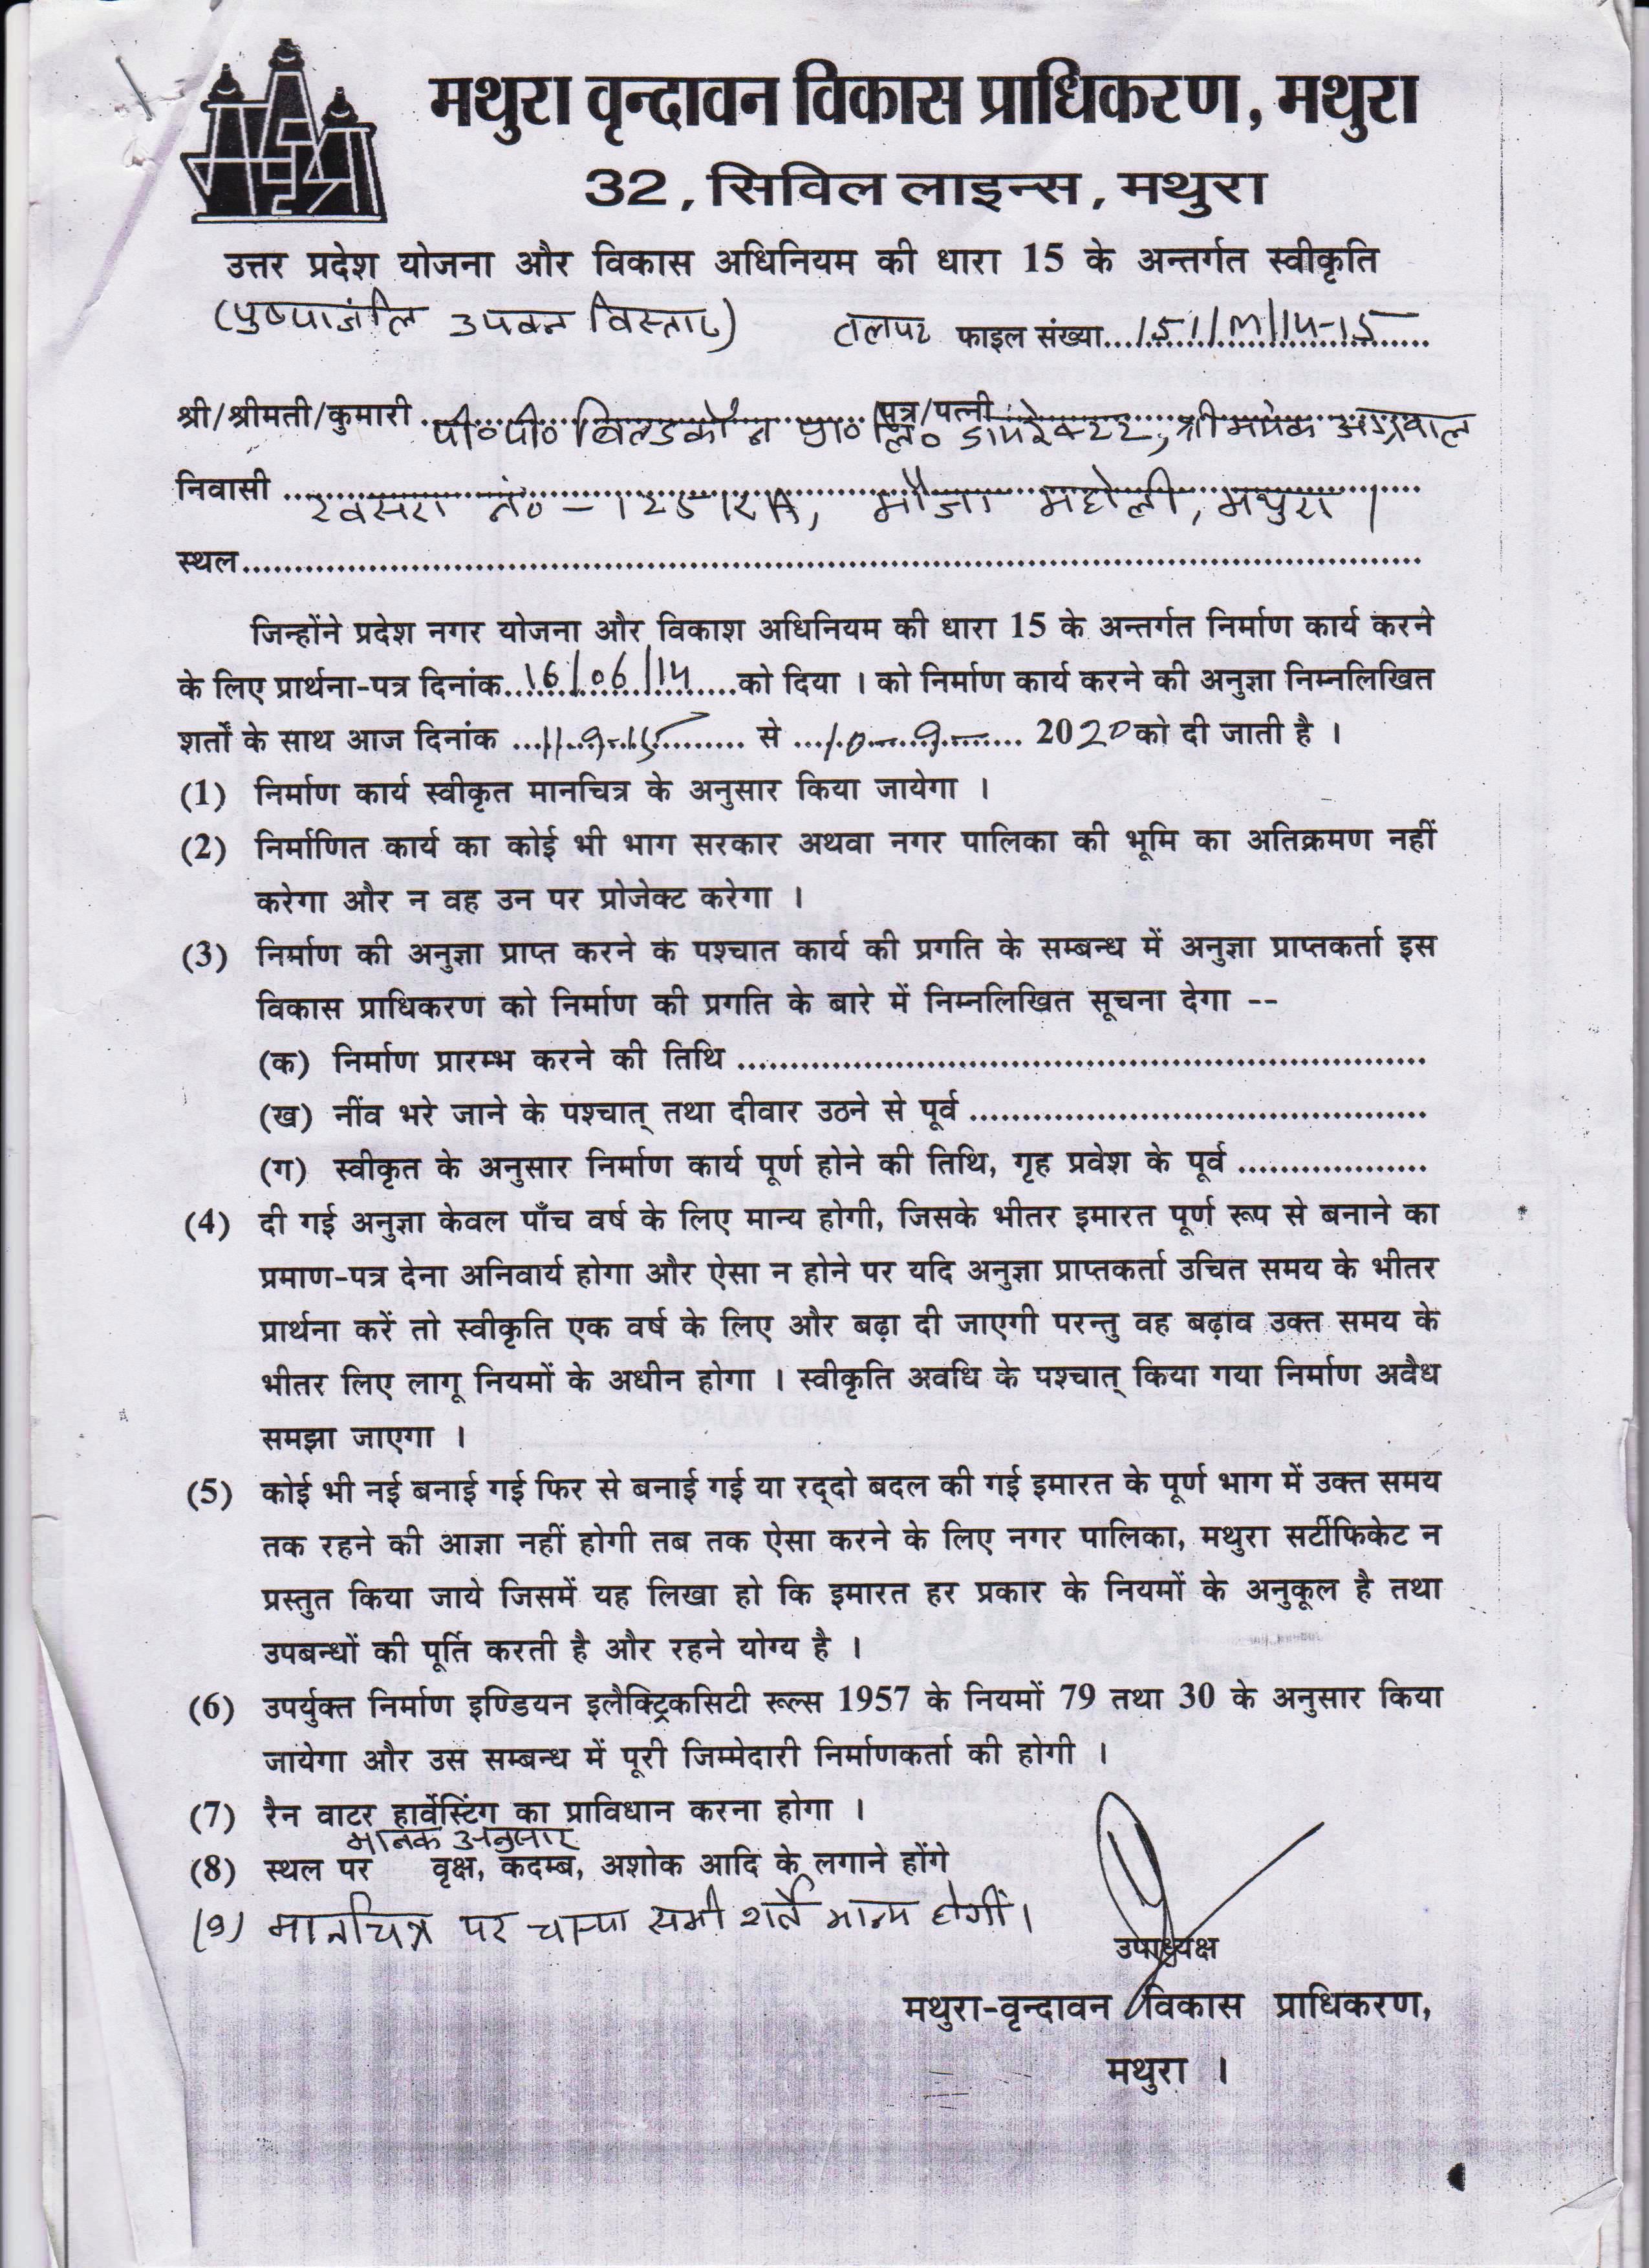 मथुरा वृन्दावन विकास प्राधिकरण, मथुरा
32, सिविल लाइन्स, मथुरा
उत्तर प्रदेश योजना और विकास अधिनियम की धारा 15 के अन्तर्गत स्वीकृति
(पुष्पांजलि उपवन विस्तार) तलपट फाइल संख्या...151/M/14-15
श्री/श्रीमती/कुमारी पी०पी० बिल्डकॉन प्रा० लि० पुत्र/पत्नी डायरेक्टर, श्री मयंक अग्रवाल
निवासी खसरा नं०-125/2A, मौजा महोली, मथुरा।
स्थल
जिन्होंने प्रदेश नगर योजना और विकाश अधिनियम की धारा 15 के अन्तर्गत निर्माण कार्य करने
के लिए प्रार्थना-पत्र दिनांक...16/06/14...को दिया । को निर्माण कार्य करने की अनुज्ञा निम्नलिखित
शर्तों के साथ आज दिनांक ...11-9-15... से ...10-9-... 2020 को दी जाती है ।
(1) निर्माण कार्य स्वीकृत मानचित्र के अनुसार किया जायेगा ।
(2) निर्माणित कार्य का कोई भी भाग सरकार अथवा नगर पालिका की भूमि का अतिक्रमण नहीं
करेगा और न वह उन पर प्रोजेक्ट करेगा ।
(3) निर्माण की अनुज्ञा प्राप्त करने के पश्चात कार्य की प्रगति के सम्बन्ध में अनुज्ञा प्राप्तकर्ता इस
विकास प्राधिकरण को निर्माण की प्रगति के बारे में निम्नलिखित सूचना देगा --
(क) निर्माण प्रारम्भ करने की तिथि ...
(ख) नींव भरे जाने के पश्चात् तथा दीवार उठने से पूर्व ...
(ग) स्वीकृत के अनुसार निर्माण कार्य पूर्ण होने की तिथि, गृह प्रवेश के पूर्व ...
(4) दी गई अनुज्ञा केवल पाँच वर्ष के लिए मान्य होगी, जिसके भीतर इमारत पूर्ण रूप से बनाने का
प्रमाण-पत्र देना अनिवार्य होगा और ऐसा न होने पर यदि अनुज्ञा प्राप्तकर्ता उचित समय के भीतर
प्रार्थना करें तो स्वीकृति एक वर्ष के लिए और बढ़ा दी जाएगी परन्तु वह बढ़ाव उक्त समय के
भीतर लिए लागू नियमों के अधीन होगा । स्वीकृति अवधि के पश्चात् किया गया निर्माण अवैध
समझा जाएगा ।
(5) कोई भी नई बनाई गई फिर से बनाई गई या रद्दो बदल की गई इमारत के पूर्ण भाग में उक्त समय
तक रहने की आज्ञा नहीं होगी तब तक ऐसा करने के लिए नगर पालिका, मथुरा सर्टीफिकेट न
प्रस्तुत किया जाये जिसमें यह लिखा हो कि इमारत हर प्रकार के नियमों के अनुकूल है तथा
उपबन्धों की पूर्ति करती है और रहने योग्य है ।
(6) उपर्युक्त निर्माण इण्डियन इलैक्ट्रिकसिटी रूल्स 1957 के नियमों 79 तथा 30 के अनुसार किया
जायेगा और उस सम्बन्ध में पूरी जिम्मेदारी निर्माणकर्ता की होगी ।
(7) रैन वाटर हार्वेस्टिंग का प्राविधान करना होगा ।
मानक अनुसार
(8) स्थल पर वृक्ष, कदम्ब, अशोक आदि के लगाने होंगे
(9) मानचित्र पर चस्पा सभी शर्ते मान्य होगीं।
उपाध्यक्ष
मथुरा-वृन्दावन विकास प्राधिकरण,
मथुरा ।